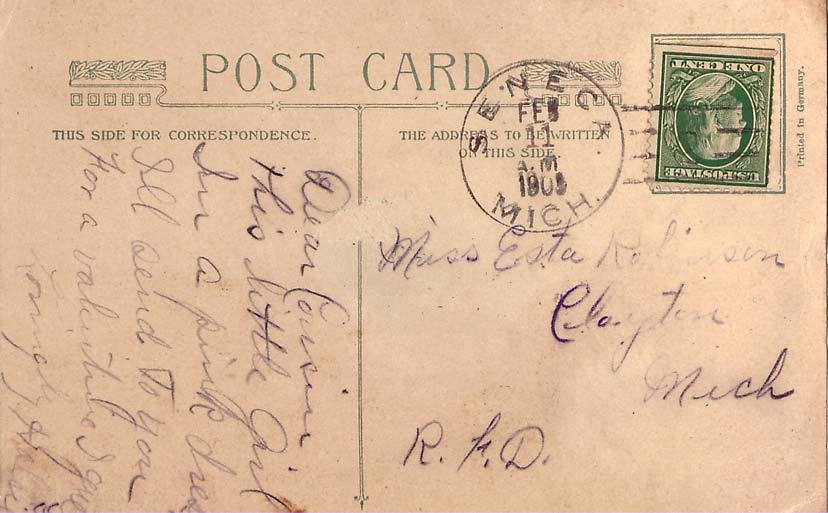 POST CARD
THIS SIDE FOR CORRESPONDENCE.
THE ADDRESS TO BE WRITTEN
ON THIS SIDE.
SENECA
FEB
11
A.M.
MICH.
U.S. POSTAGE
ONE CENT
Printed in Germany.
Dear Cousin
This little Girl
In a pink dres
I'll send to you
For a valentine I
Miss Esta Robinson
Clayton
Mich
R.F.D.